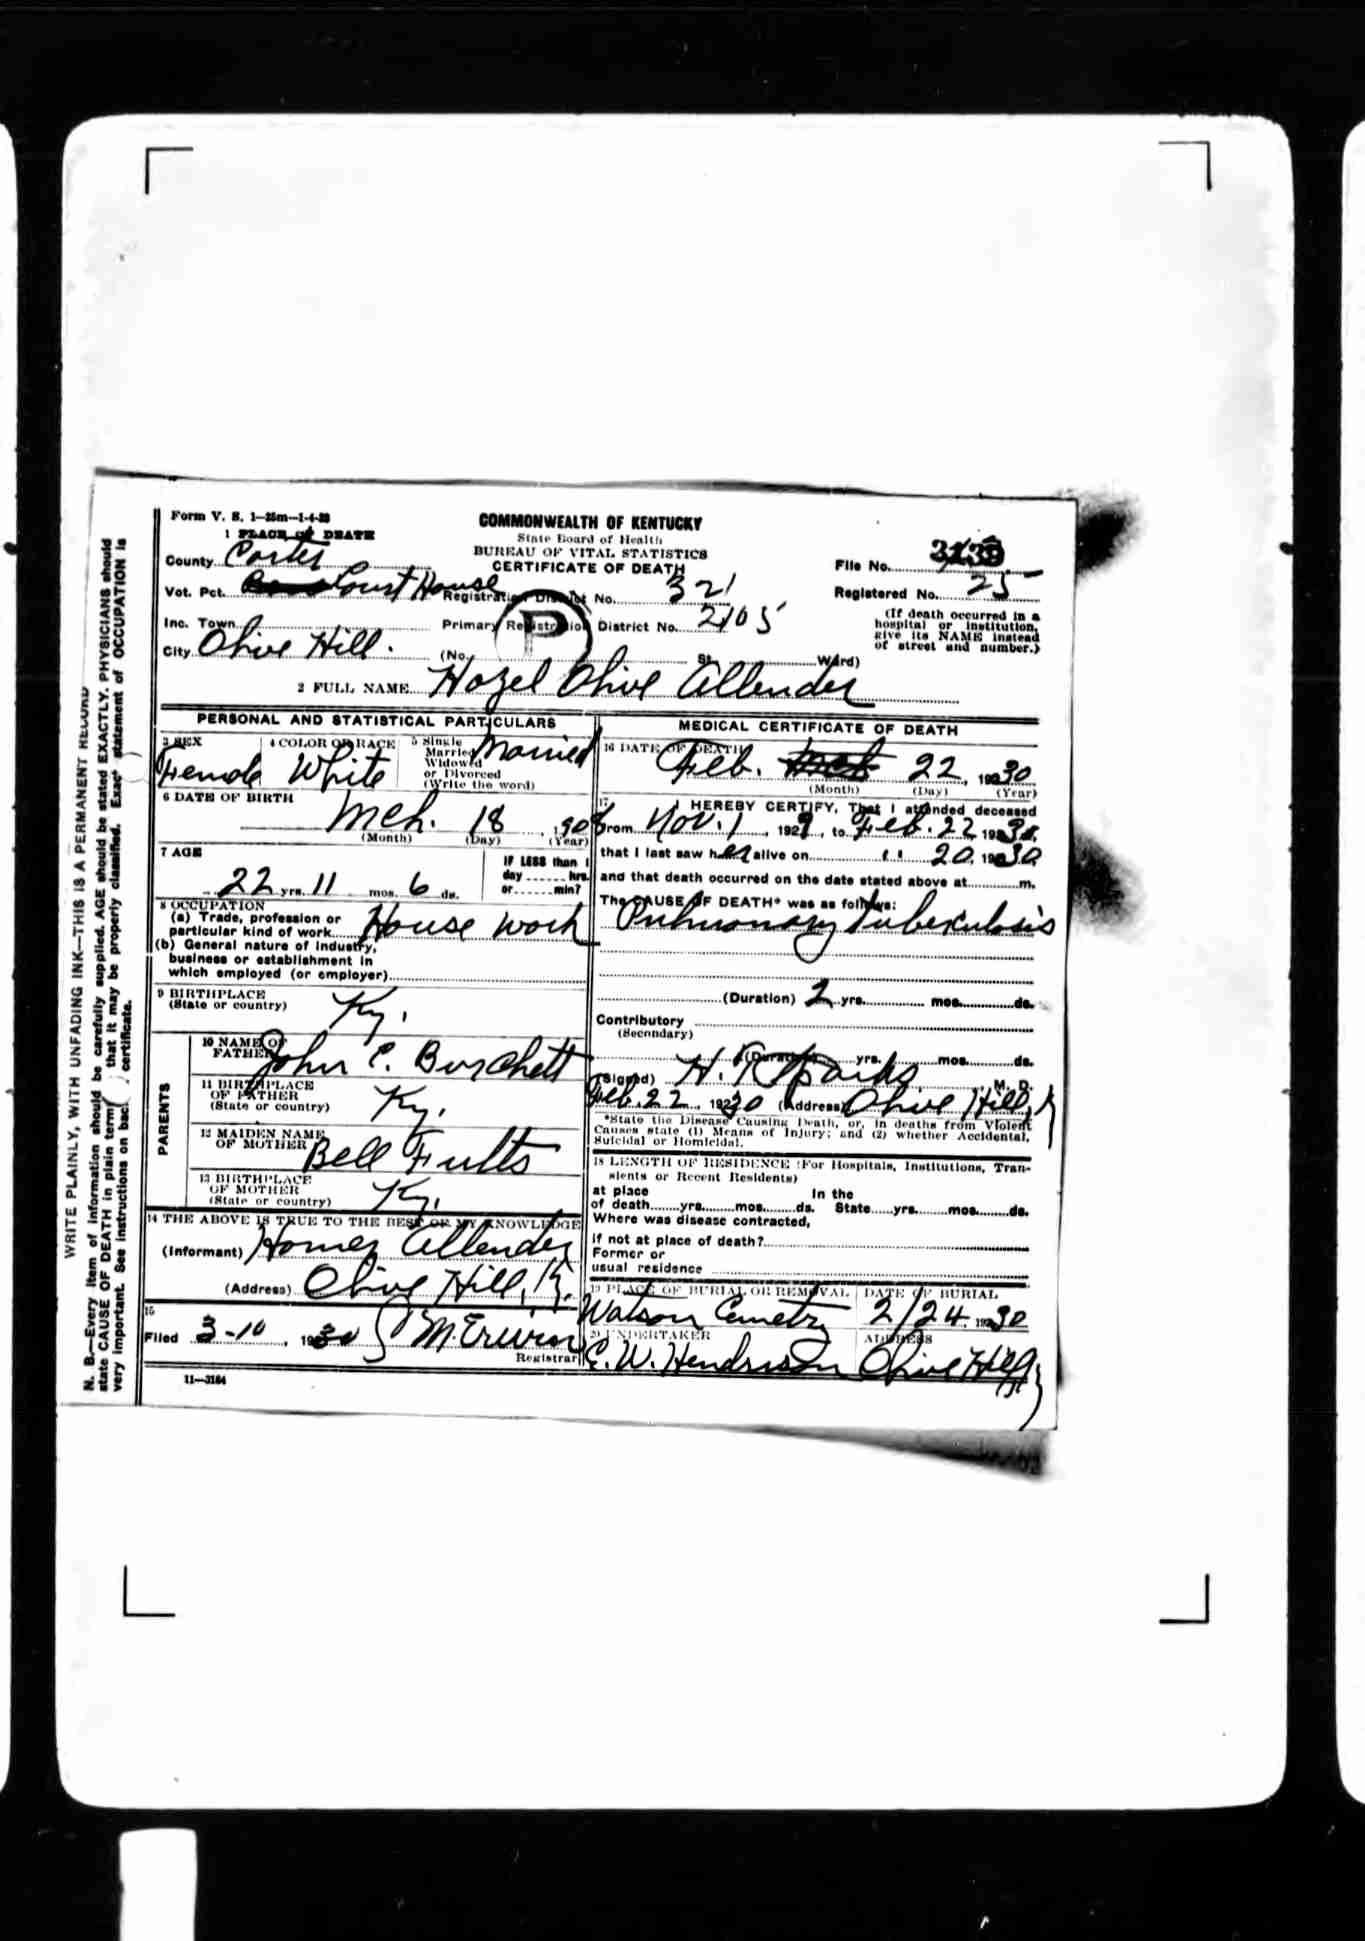 Form V. S. 1—25m—1-4-28
1 PLACE of DEATH
COMMONWEALTH OF KENTUCKY
State Board of Health
BUREAU OF VITAL STATISTICS
CERTIFICATE OF DEATH
County Carter
Vot. Pct. Court House
Inc. Town
City Olive Hill.
Registration District No. 321
Primary Registration District No. 2105
P
(No. St. Ward)
File No.
Registered No. 25
(If death occurred in a
hospital or institution,
give its NAME instead
of street and number.)
2 FULL NAME Hazel Olive Allender
PERSONAL AND STATISTICAL PARTICULARS
3 SEX
Female
4 COLOR OR RACE
White
5 Single
Married
Widowed
or Divorced
(Write the word)
Married
6 DATE OF BIRTH
Mch. 18, 190
(Month) (Day) (Year)
7 AGE
22 yrs. 11 mos. 6 ds.
IF LESS than 1
day ...... hrs.
or ...... min?
8 OCCUPATION
(a) Trade, profession or
particular kind of work House work
(b) General nature of industry,
business or establishment in
which employed (or employer)
9 BIRTHPLACE
(State or country) Ky.
PARENTS
10 NAME OF
FATHER John C. Burchett
11 BIRTHPLACE
OF FATHER
(State or country) Ky.
12 MAIDEN NAME
OF MOTHER Bell Fults
13 BIRTHPLACE
OF MOTHER
(State or country) Ky.
14 THE ABOVE IS TRUE TO THE BEST OF MY KNOWLEDGE
(Informant) Homer Allender
(Address) Olive Hill, Ky.
15
Filed 3-10, 1930 M. Erwin
Registrar
11—3184
MEDICAL CERTIFICATE OF DEATH
16 DATE OF DEATH
Feb. 22, 1930
(Month) (Day) (Year)
17 I HEREBY CERTIFY, That I attended deceased
from Nov. 1, 1929, to Feb. 22 1930,
that I last saw her alive on " 20, 1930
and that death occurred on the date stated above at m.
The CAUSE OF DEATH* was as follows:
Pulmonary tuberculosis
(Duration) 2 yrs. mos. ds.
Contributory
(Secondary)
(Duration) yrs. mos. ds.
(Signed) H. R. Sparks, M. D.
Feb. 22, 1930 (Address) Olive Hill, Ky
*State the Disease Causing Death, or, in deaths from Violent
Causes state (1) Means of Injury; and (2) whether Accidental,
Suicidal or Homicidal.
18 LENGTH OF RESIDENCE (For Hospitals, Institutions, Tran-
sients or Recent Residents)
at place In the
of death yrs. mos. ds. State yrs. mos. ds.
Where was disease contracted,
if not at place of death?
Former or
usual residence
19 PLACE OF BURIAL OR REMOVAL
Watson Cemetry
DATE OF BURIAL
2/24, 1930
20 UNDERTAKER
C. W. Henderson
ADDRESS
Olive Hill Ky
WRITE PLAINLY, WITH UNFADING INK—THIS IS A PERMANENT RECORD
N. B.—Every item of information should be carefully supplied. AGE should be stated EXACTLY. PHYSICIANS should
state CAUSE OF DEATH in plain terms that it may be properly classified. Exact statement of OCCUPATION is
very important. See instructions on back certificate.